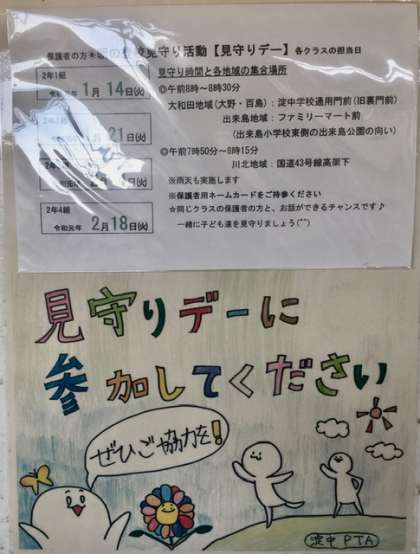 保護者の方 見守り活動【見守りデー】各クラスの担当日
2年1組
1月14日(火)
21日(火)
2年4組
令和元年 2月18日(火)
見守り時間と各地域の集合場所
◎午前8時~8時30分
大和田地域(大野・百島):淀中学校通用門前(旧裏門前)
出来島地域:ファミリーマート前
(出来島小学校東側の出来島公園の向い)
◎午前7時50分~8時15分
川北地域:国道43号線高架下
※雨天も実施します
※保護者用ネームカードをご持参ください
☆同じクラスの保護者の方と、お話ができるチャンスです♪
一緒に子ども達を見守りましょう(^^)
見守りデーに
参加してください
ぜひご協力を!
淀中PTA